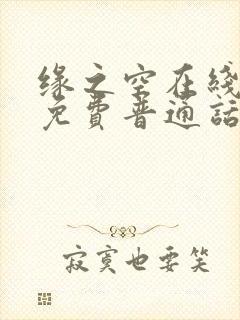 缘之空在线
免費普通話
寂寞也要笑